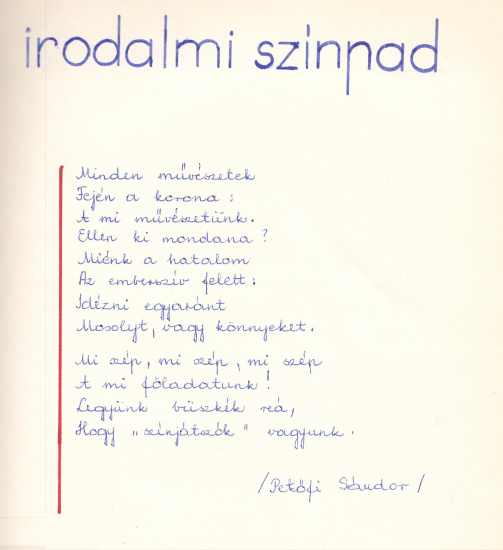 irodalmi szinpad
Minden művészetek
Fején a korona :
A mi művészetünk.
Ellen ki mondana ?
Miénk a hatalom
Az emberszív felett :
Idézni egyaránt
Mosolyt, vagy könnyeket.
Mi szép, mi szép, mi szép
A mi föladatunk !
Legyünk büszkék reá,
Hogy „színjátszók" vagyunk.
/Petőfi Sándor/